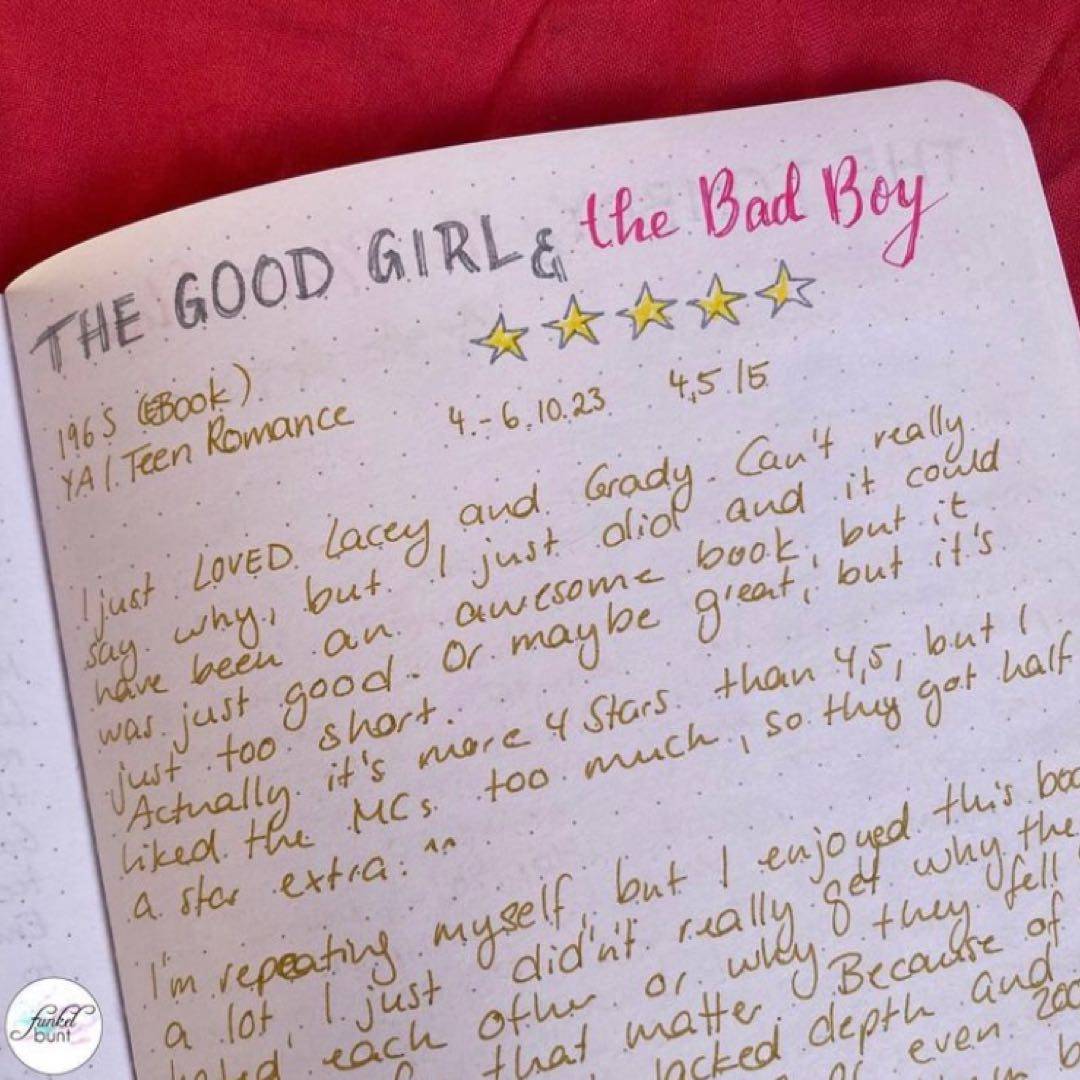 THE GOOD GIRL & the Bad Boy
196 S (EBook)
YA/Teen Romance 4.-6.10.23 4,5/5
I just LOVED Lacey and Grady. Can't really
say why, but I just did and it could
have been an awesome book, but it
was just good. Or maybe great, but it's
just too short.
Actually it's more 4 Stars than 4,5, but I
liked the MCs too much, so they got half
a star extra. ^^
I'm repeating myself, but I enjoyed this
a lot. I just didn't really get why
each other or why they fell
that matter. Because of
lacked depth and
even
funkel
bunt